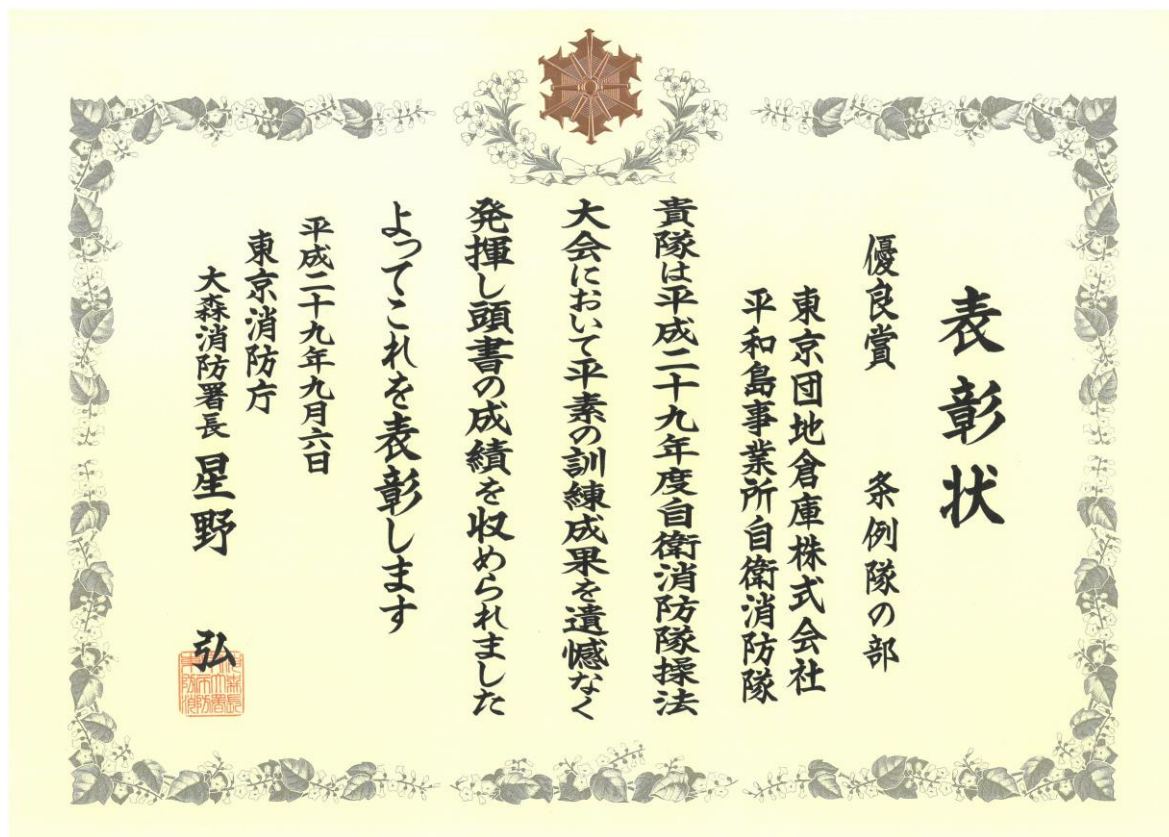 表彰状
優良賞 条例隊の部
東京団地倉庫株式会社
平和島事業所自衛消防隊
貴隊は平成二十九年度自衛消防隊操法
大会において平素の訓練成果を遺憾なく
発揮し頭書の成績を収められました
よってこれを表彰します
平成二十九年九月六日
東京消防庁
大森消防署長 星野 弘